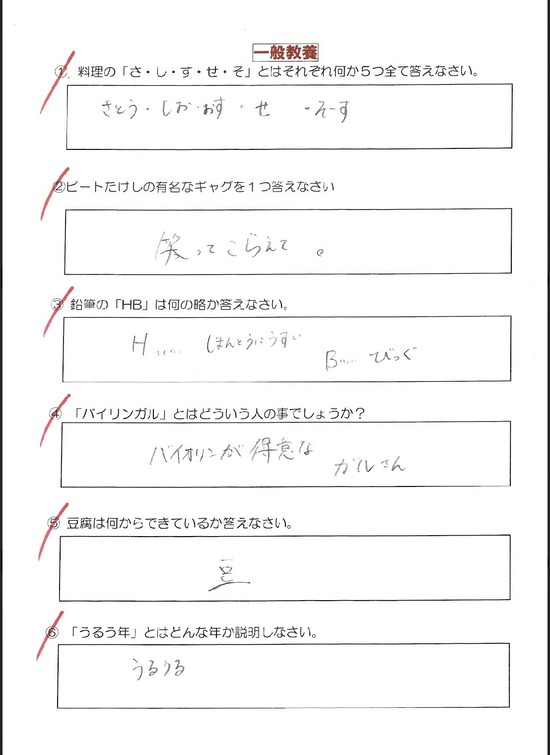 一般教養
①. 料理の「さ・し・す・せ・そ」とはそれぞれ何か5つ全て答えなさい。
さとう・しお・おす・せ ・そーす
②ビートたけしの有名なギャグを1つ答えなさい
笑ってこらえて。
③ 鉛筆の「HB」は何の略か答えなさい。
H..... ほんとうにうすい
B..... びっぐ
④ 「バイリンガル」とはどういう人の事でしょうか?
バイオリンが得意な
ガルさん
⑤ 豆腐は何からできているか答えなさい。
豆
⑥ 「うるう年」とはどんな年か説明しなさい。
うるうる